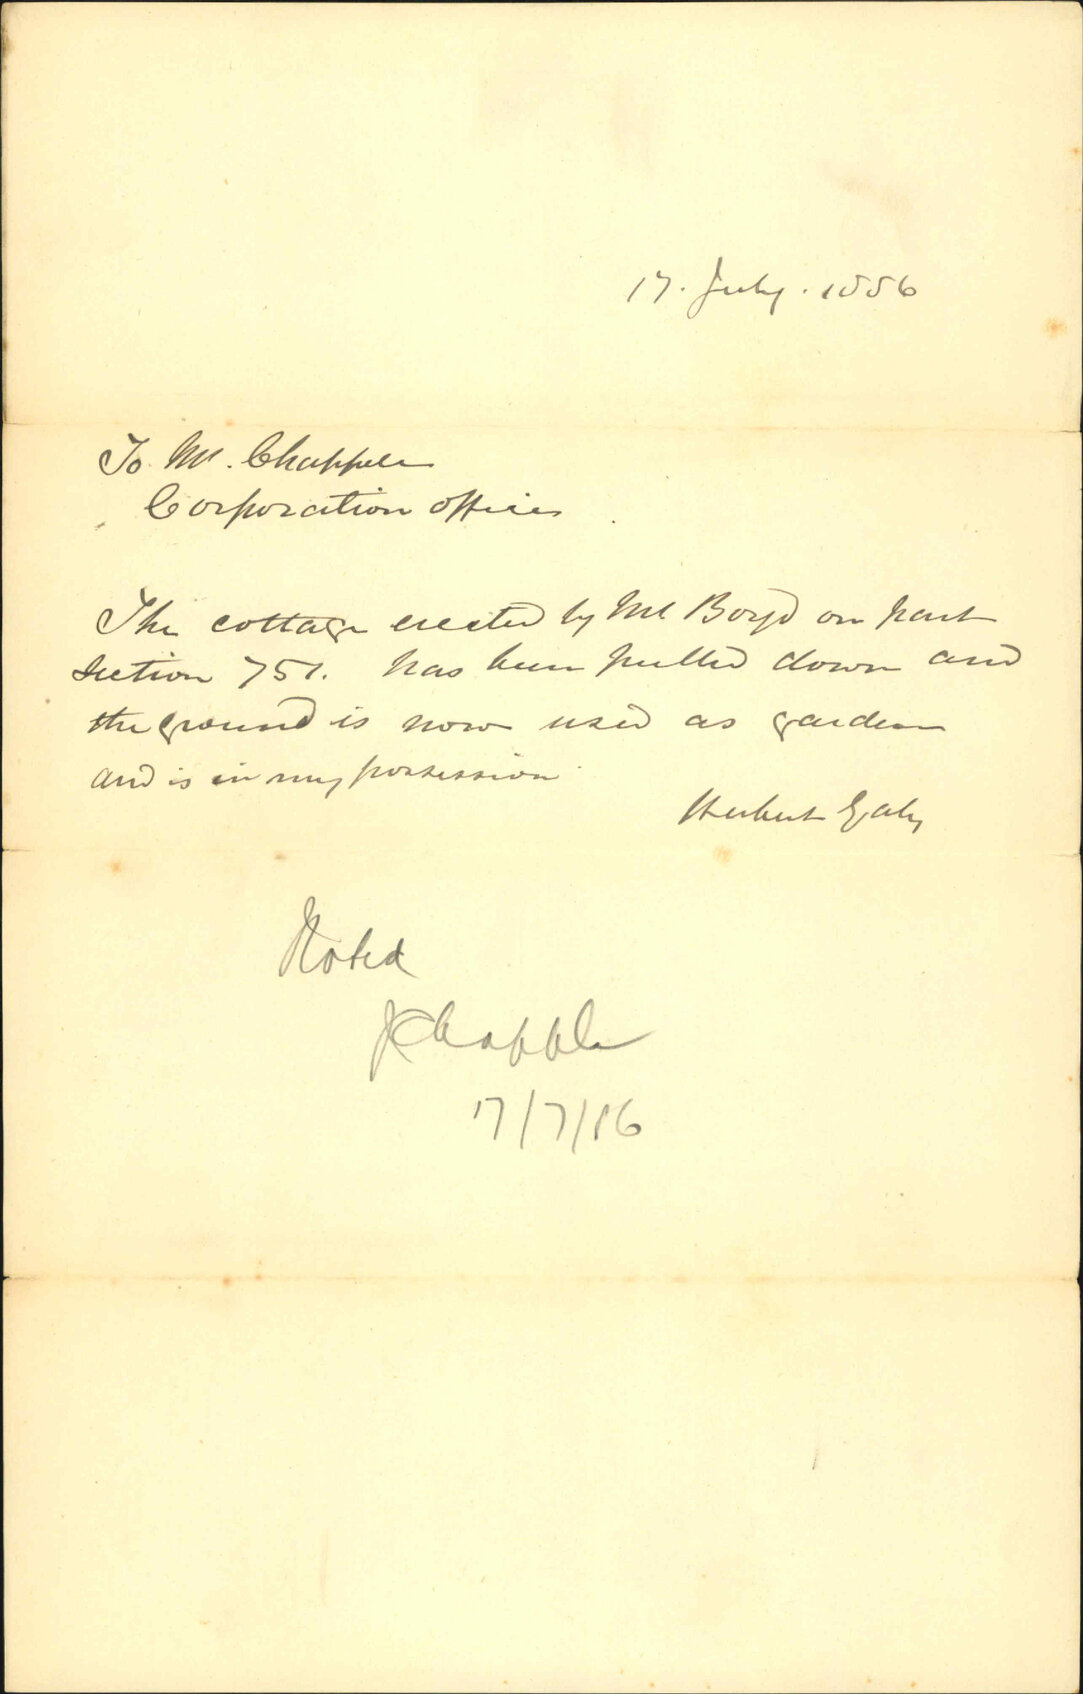 17. July. 1886
To Mr. Chapple
Corporation offices
The cottage erected by Mr Boyd on part
Section 751. has been pulled down and
the ground is now used as garden
and is in my possession
Herbert Gaby
Noted
JChapple
17/7/86